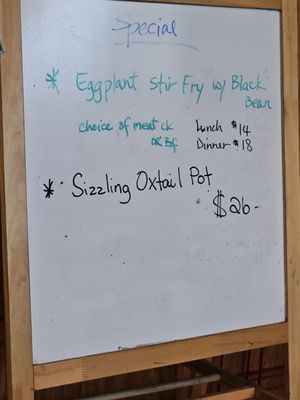 Special
* Eggplant Stir Fry w/ Black
Bean
choice of meat ck Lunch $14
or Bf Dinner $18
* Sizzling Oxtail Pot
$26-